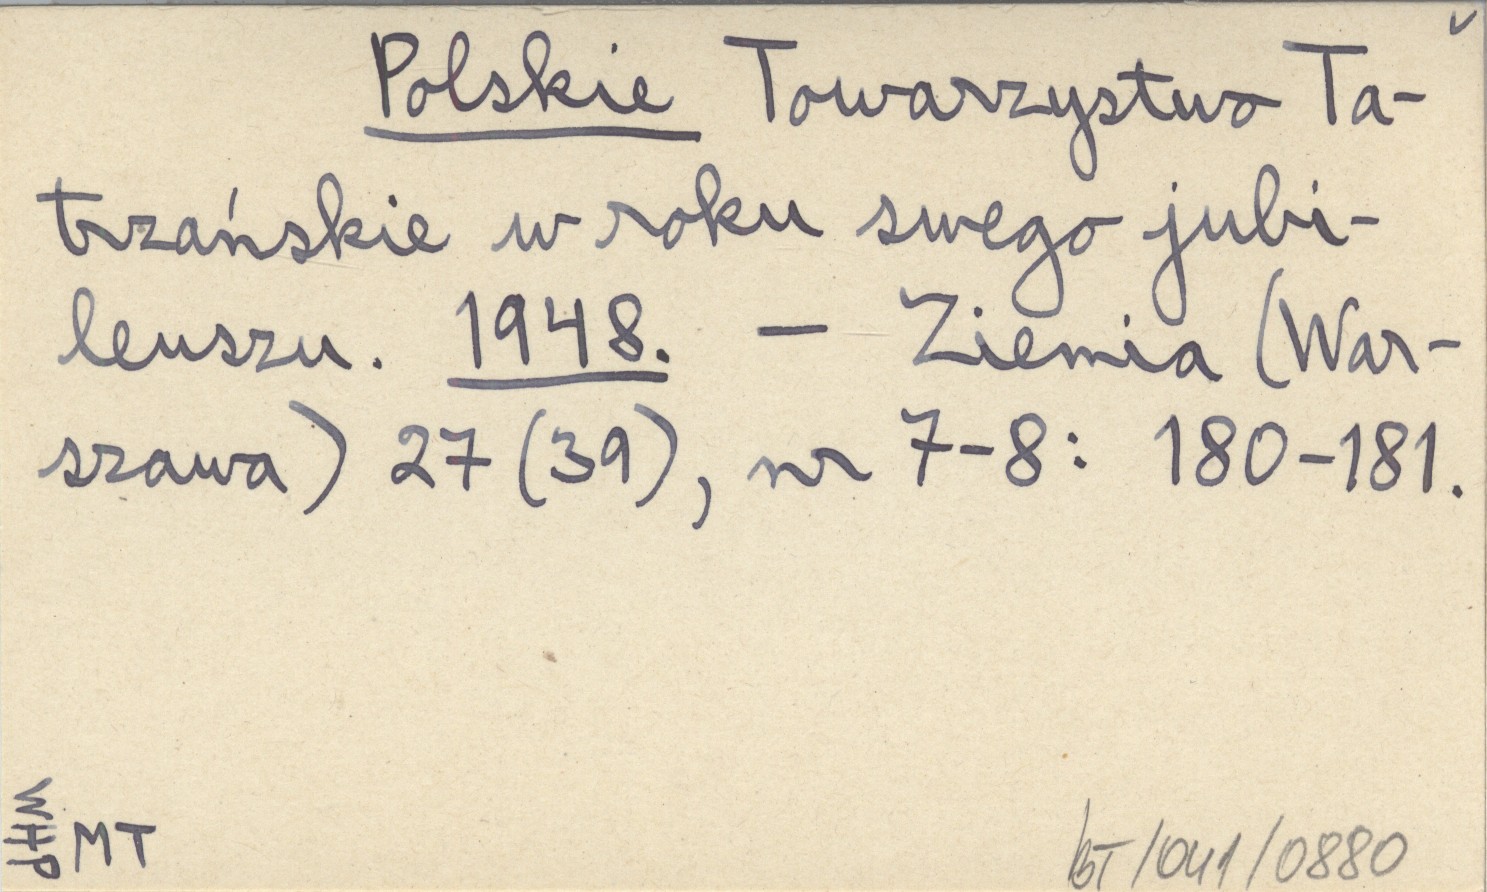 Polskie Towarzystwo Ta-
trzańskie w roku swego jubi-
leuszu. 1948. — Ziemia (War-
szawa) 27 (39), nr 7-8: 180-181.
WHP
MT
BT/041/0880